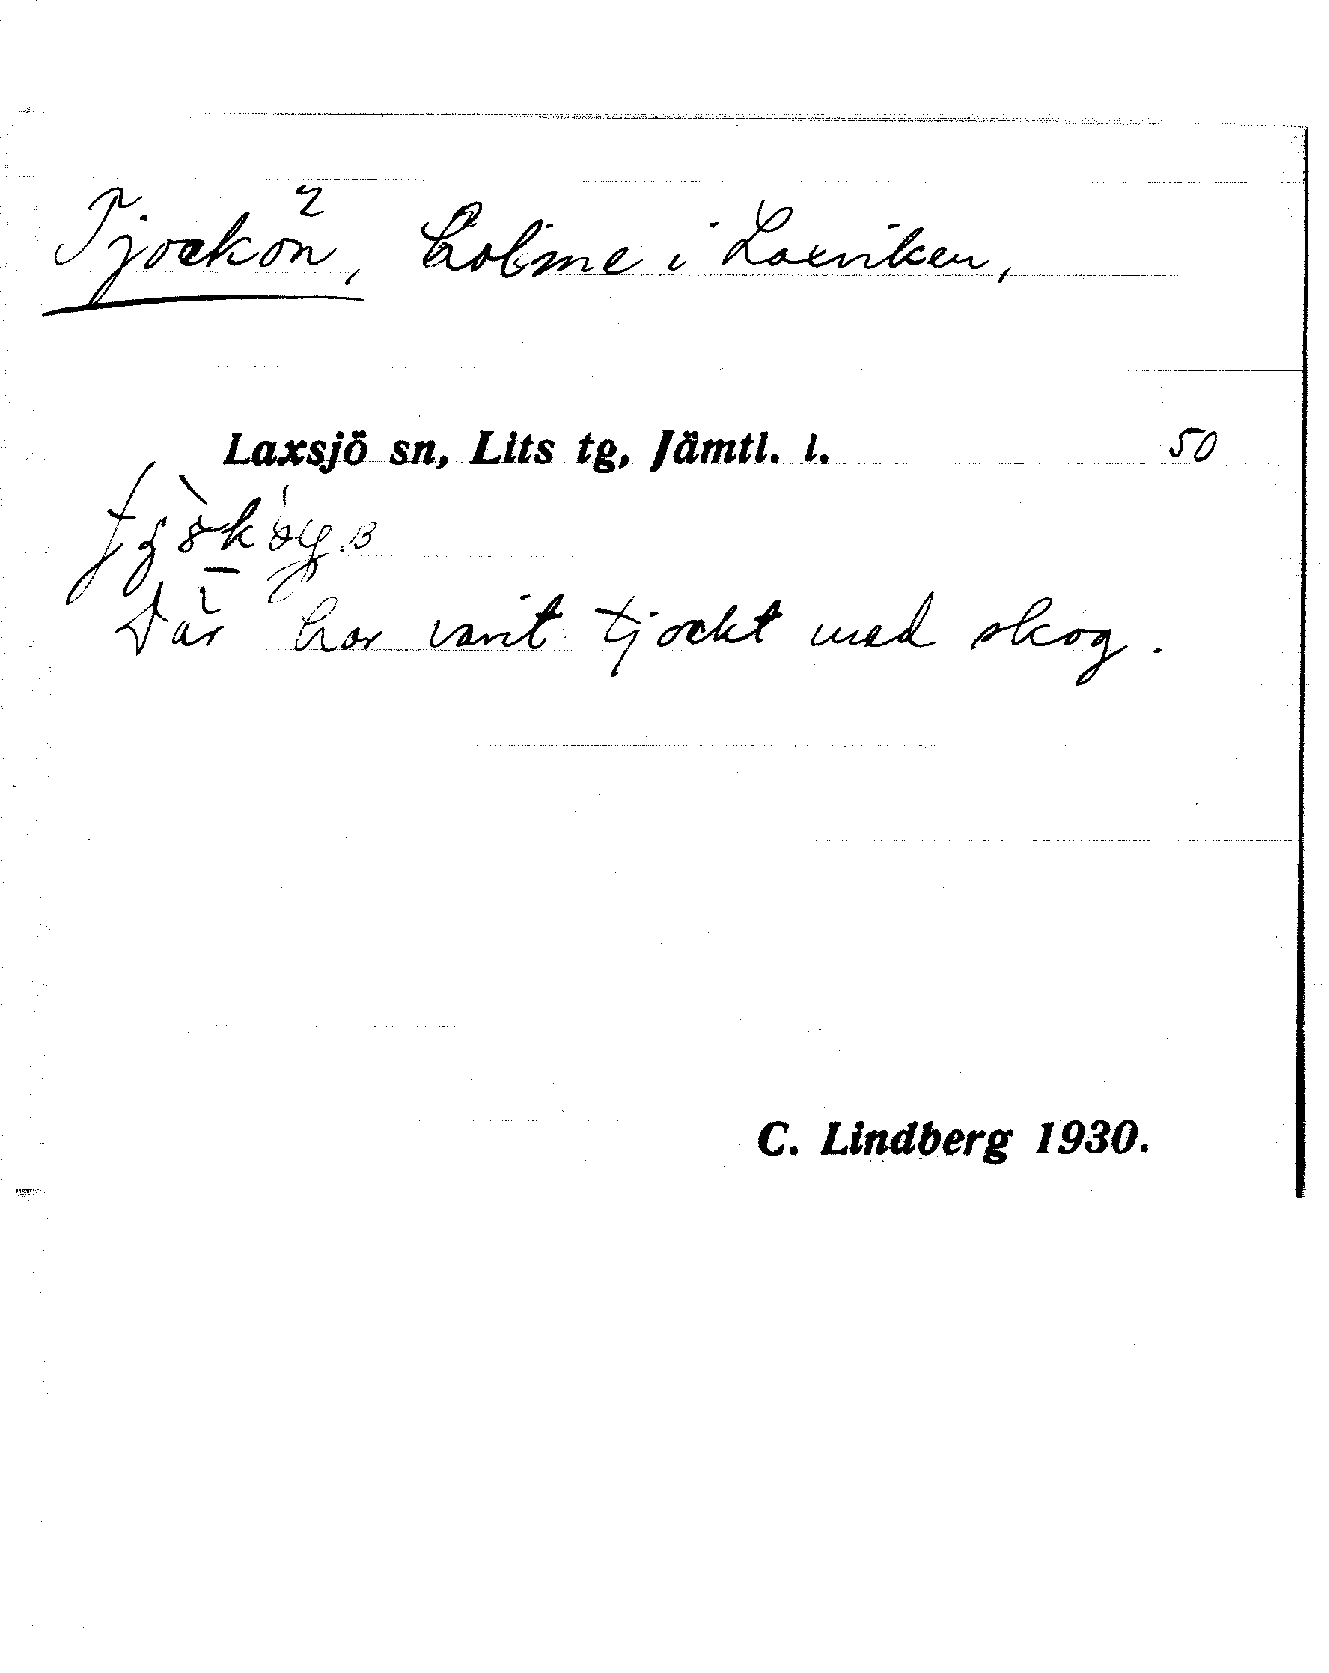 Tjockön, holme i Laxviken,
Laxsjö sn, Lits tg, Jämtl. l. 50
Där har varit tjockt med skog.
C. Lindberg 1930.